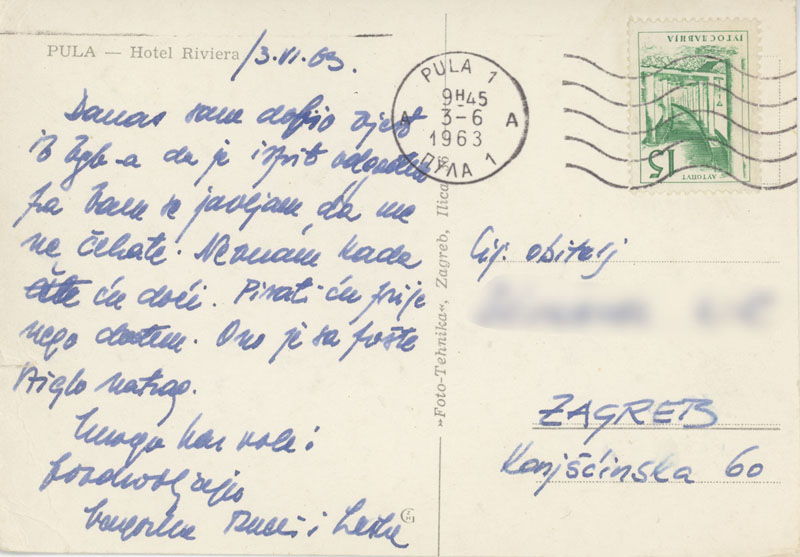 PULA — Hotel Riviera
/3.VI.63.
Danas sam dobio vijest
iz Zgb-a da je ispit odgođen
pa Vam se javljam da me
ne čekate. Ne znam kada
ću doći. Pisat ću prije
nego dođem. Ono je sa pošte
stiglo natrag.
Mnogo Vas vole i
pozdravljaju
i
PULA 1
9H45
3-6
1963
A A
ПУЛА 1
ЈУГОСЛАВИЈА
15
АУТОПУТ
»Foto-Tehnika«, Zagreb, Ilica
Cij. obitelj
ZAGREB
Konjšćinska 60